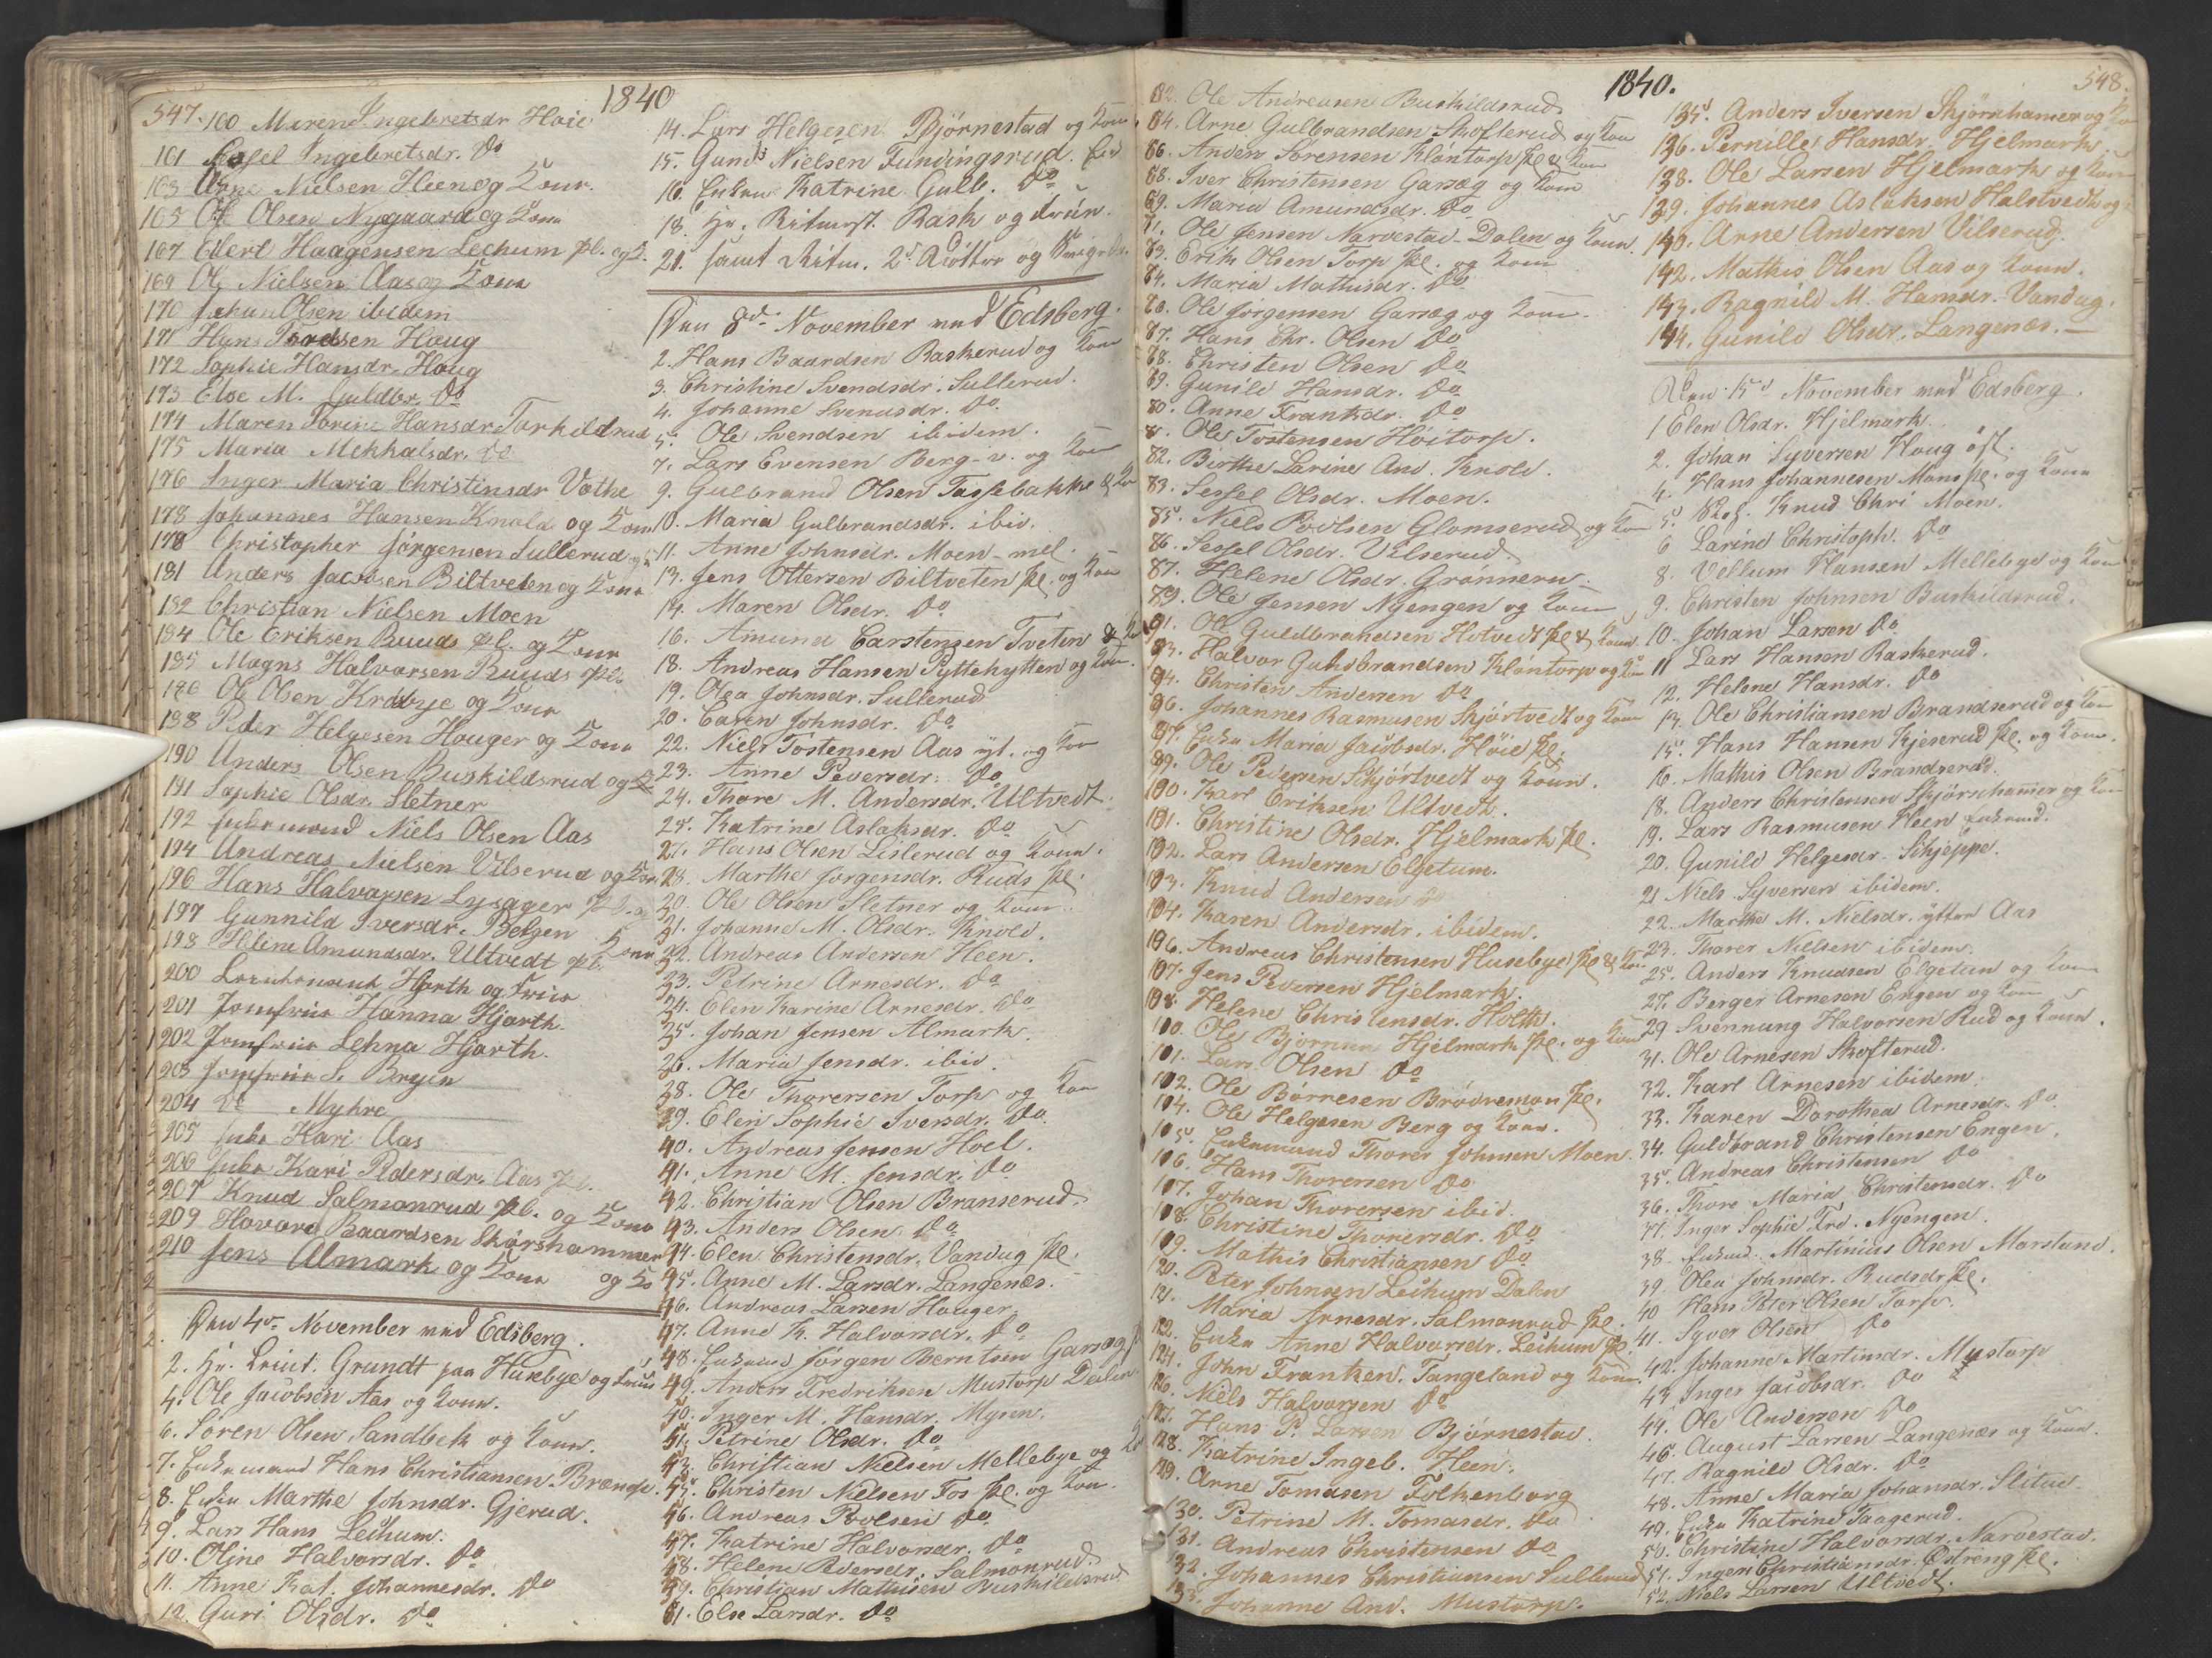 547.
1840
100 Maren Ingebretsdr Høie
101 Sessel Ingebretsdr. Do
103 Arne Nielsen Heen og Kone.
105 Ole Olsen Nygaard og Kone
107 Evert Haagensen Lechum pl. og K.
169 Ole Nielsen Aas og Kone
170 Johan Olsen ibidem
171 Hans Tordsen Houg
172 Sophie Hansdr. Houg
173 Else M. Guldbr. Do
174 Maren Torine Hansdr Torkildrud
175 Maria Mekkalsdr. Do
176 Inger Maria Christinsdr Vathe
178 Johannes Hansen Knold og Kone
178 Christopher Jørgensen Sullerud og K
181 Anders Jacobsen Biltveten og Kone
182 Christian Nielsen Moen
184 Ole Eriksen Ruuds pl. og Kone
185 Magns Halvorsen Ruuds pl.
186 Ole Olsen Krabye og Kone
188 Peder Helgesen Houger og Kone
190 Anders Olsen Buskildsrud og K
191 Sophie Olsdr. Sletner
192 Enkemand Niels Olsen Aas
194 Andreas Nielsen Vilserud og Kone
196 Hans Halvorsen Lysager pl. og
197 Gunnild Iversdr. Belgen Kone
198 Helene Amundsdr. Ultvedt pl.
200 Leutenant Hjorth og Frue
201 Jomfrue Hanna Hjorth.
202 Jomfrue Lehna Hjorth.
203 Jomfrue S. Breien
204 Do Myhre
205 Enke Kari Aas
206 Enke Kari Pedersdr. Aas pl.
207 Knud Salmonrud pl. og Kone
209 Hovard Baardsen Skørshammer
210 Jens Almark og Kone og Ko
Den 4de November ved Edsberg.
2. Hr. Leiut. Grundt paa Husebye og Frue
4. Ole Jacobsen Aas og Kone.
6. Søren Olsen Sandbek og Kone.
7. Enkemand Hans Christiansen Brænde.
8. Enke Marthe Johnsdr. Gjerud.
9. Lars Hans Lechum.
10. Oline Halvorsdr. Do
11. Anne Kat. Johannesdr. Do
12. Guri Olsdr. Do
14. Lars Helgesen Bjørnestad og Kone
15. Gunds Nielsen Fundingsrud. Enk
16. Enken Katrine Gulb. Do
18. Hr. Ritmest. Rask og Fruen.
21. samt Ritm. 2de Døttre og
Den 8de November ved Edsberg.
2. Hans Baardsen Raskerud og Kone
3. Christine Svendsdr. Sullerud.
4. Johanne Svendsdr. Do.
5. Ole Svendsen ibidem.
7. Lars Evensen Berg-v. og Kone
9. Gulbrand Olsen Tassebakke & Ko
10. Maria Gulbrandsdr. ibid.
11. Anne Johnsdr. Moen-mel.
13. Jens Ottersen Biltveten pl. og Kone
14. Maren Olsdr. Do
16. Amund Carstensen Tveten & Ko
18. Andreas Hansen Pyttehytten og Kone.
19. Olea Johnsdr. Sullerud
20. Caren Johnsdr. Do
22. Niels Tostensen Aas yt. og Kone
23. Anne Pedersdr. Do
24. Thore M. Andersdr. Ultvedt.
25. Katrine Aslaksdr. Do
27. Hans Olsen Lislerud og Kone.
28. Marthe Jørgensdr. Ruds pl.
30. Ole Olsen Sletner og Kone.
31. Johanne M. Olsdr. Knold.
32. Andreas Andersen Heen.
33. Petrine Arnesdr. Do
34. Elen Karine Arnesdr. Do
35. Johan Jensen Almark.
36. Maria Jensdr. ibid.
38. Ole Thorersen Torp og Kone
39. Elen Sophie Iversdr. Do.
40. Andreas Jensen Hoel.
41. Anne M. Jensdr. Do
42. Christian Olsen Branserud.
43. Anders Olsen Do
44. Elen Christensdr. Vandug pl.
45. Anne M. Larsdr. Langenæs.
46. Andreas Larsen Houger.
47. Anne K. Halvorsdr. Do
48. Enkemand Jørgen Berntsen Garsæg p
49. Anders Fredriksen Mustorp Deilen
50. Inger M. Hansdr. Mysen.
51. Petrine Olsdr. Do
53. Christian Nielsen Mellebye og Ko
55. Christen Nielsen Fos pl. og Kone.
56. Andreas Povlsen Do
57. Katrine Halvorsdr. Do
58. Helene Pedersdr. Salmonrud.
59. Christian Mathisen Buskildsrud
61. Else Larsdr. Do
1840.
548.
62. Ole Andreasen Buskildsrud
64. Arne Gulbrandsen Skofterud og Kone
66. Anders Sørensen Kløntorp pl. & Kone
68. Iver Christensen Garsæg og Kone
69. Maria Amundsdr. Do
71. Ole Jensen Narvestad-Dalen og Kone.
73. Erik Olsen Torp pl. og Kone
74. Maria Mathisdr. Do
76. Ole Jørgensen Garsæg og Kone.
77. Hans Chr. Olsen Do
78. Christen Olsen Do
79. Gunild Hansdr. Do
80. Anne Frantsdr. Do
81. Ole Tostensen Høitorp.
82. Birthe Larine And. Knold.
83. Sessel Olsdr. Moen.
85. Niels Povlsen Glomserud og Kone
86. Sessel Olsdr. Vilserud
87. Helene Olsdr. Grønnern.
89. Ole Jensen Nyengen og Kone
91. Ole Guldbrandsen Hotvedt pl & Kone
93. Halvor Guldbrandsen Kløntorp og Kone
94. Christen Andersen Do
96. Johannes Rasmusen Skjørtvedt og Kone
97. Enke Maria Jacobsdr. Høie pl.
99. Ole Pedersen Skjørtvedt og Kone.
100. Karl Eriksen Ultvedt.
101. Christine Olsdr. Hjelmark pl.
102. Lars Andersen Elgetum.
103. Knud Andersen Do
104. Karen Andersdr. ibidem.
106. Andreas Christensen Husebye pl & Kone
107. Jens Pedersen Hjelmark.
108. Helene Christensdr. Holth.
110. Ole Bjørnsen Hjelmark pl. og Kone
111. Lars Olsen Do
112. Ole Børresen Brødremoen pl.
114. Ole Helgesen Berg og Kone.
115. Enkemand Thorer Johnsen Moen.
116. Hans Thorersen Do
117. Johan Thorersen ibid.
118. Christine Thorersdr. Do
119. Mathis Christiansen Do
120. Peter Johnsen Leikum Dalen
121. Maria Arnesdr. Salmonrud pl.
122. Enke Anne Halvorsdr. Leikum pl.
124. John Frantsen. Tangeland og Kone.
126. Niels Halvorsen Do
127. Hans P. Larsen Bjørnestad.
128. Katrine Ingeb. Heen.
129. Arne Tomasen Folkenborg
130. Petrine M. Tomasdr. Do
131. Andreas Christensen Do
132. Johannes Christiansen Sullerud
133. Johanne And. Mustorp.
135. Anders Iversen Skjørshamer og Ko
136. Pernille Hansdr. Hjelmark.
138. Ole Larsen Hjelmark og Kone
139. Johannes Aslaksen Halstvedt og
140. Arne Andersen Vilserud.
142. Mathis Olsen Aas og Kone.
143. Ragnild M. Hansdr. Vandug.
144. Gunild Olsdr. Langenæs.
Den 15de November ved Edsberg.
1 Elen Olsdr. Hjelmark.
2. Johan Syversen Houg øst.
4. Hans Johannesen Mons pl. og Kone
5. Knud Chri Moen.
6 Larine Christoph. Do
8. Vellum Hansen Mellebye og Kone
9. Christen Johnsen Buskildsrud.
10. Johan Larsen Do
11 Lars Hansen Raskerud.
12. Helene Hansdr. Do
13. Ole Christiansen Brandserud og Kone
15. Hans Hansen Kjeserud pl. og Kone.
16. Mathis Olsen Brandserud.
18. Anders Christensen Skjørshamer og Kone
19. Lars Rasmusen Heen Enkemd.
20. Gunild Helgesdr. Schjeppe.
21 Niels Syversen ibidem.
22. Marthe M. Nielsdr. yttre Aas
23. Thorer Nielsen ibidem.
25. Anders Knudsen Elgetun og Kone
27. Berger Arnesen Engen og Kone
29 Svennung Halvorsen Rud og Kone.
31. Ole Arnesen Skofterud.
32. Karl Arnesen ibidem.
33. Karen Dorothea Arnesdr. Do
34. Guldbrand Christensen Engen.
35. Andreas Christensen Do
36. Thore Maria Christensdr. Do
37. Inger Sophie Frd. Nyengen.
38. Enkemd. Martinius Olsen Morstund.
39. Olea Johnsdr. Rudsdr pl.
40 Hans Peter Olsen Torp.
41. Syver Olsen Do
42. Johanne Martinsdr. Mustorp
43 Inger Jacobsdr. Do
44. Ole Andersen Do
46. August Larsen Langenæs og Kone.
47. Ragnild Olsdr. Do
48. Anne Maria Johansdr. Slitud.
49. Enke Katrine Taagerud.
50. Christine Halvorsdr. Narvestad.
51. Ingeri Christiansdr. Østreng pl.
52. Niels Larsen Ultvedt.